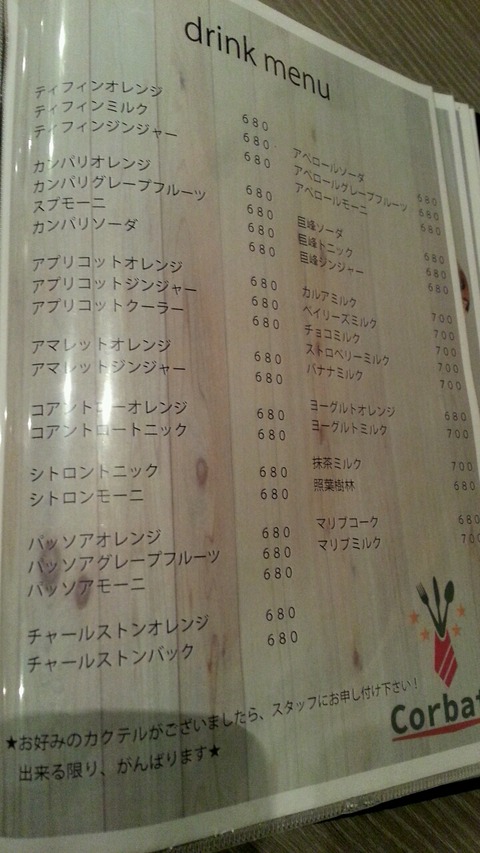 drink menu
ティフィンオレンジ 680
ティフィンミルク 680
ティフィンジンジャー 680
カンパリオレンジ 680
カンパリグレープフルーツ 680
スプモーニ 680
カンパリソーダ 680
アプリコットオレンジ 680
アプリコットジンジャー 680
アプリコットクーラー 680
アマレットオレンジ 680
アマレットジンジャー 680
コアントローオレンジ 680
コアントロートニック 680
シトロントニック 680
シトロンモーニ 680
パッソアオレンジ 680
パッソアグレープフルーツ 680
パッソアモーニ 680
チャールストンオレンジ 680
チャールストンバック 680
アペロールソーダ 680
アペロールグレープフルーツ 680
アペロールモーニ 680
巨峰ソーダ 680
巨峰トニック 680
巨峰ジンジャー 680
カルアミルク 700
ベイリーズミルク 700
チョコミルク 700
ストロベリーミルク 700
バナナミルク 700
ヨーグルトオレンジ 680
ヨーグルトミルク 700
抹茶ミルク 700
照葉樹林 680
マリブコーク 680
マリブミルク 700
★お好みのカクテルがございましたら、スタッフにお申し付け下さい！
出来る限り、がんばります★